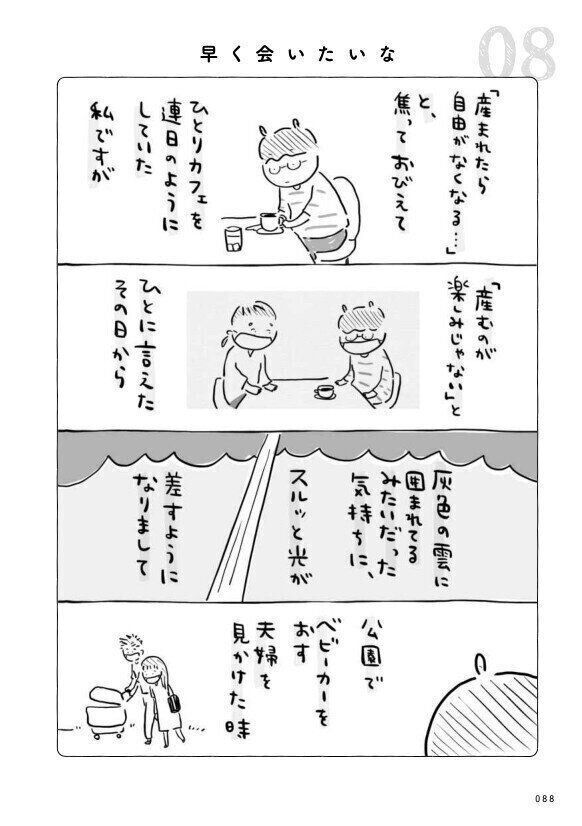 08
早く会いたいな
「産まれたら
自由がなくなる…」
と、
焦っておびえて
ひとりカフェを
連日のように
していた
私ですが
「産むのが
楽しみじゃない」と
ひとに言えた
その日から
灰色の雲に
囲まれてる
みたいだった
気持ちに、
スルッと光が
差すように
なりまして
公園で
ベビーカーを
おす
夫婦を
見かけた時
088